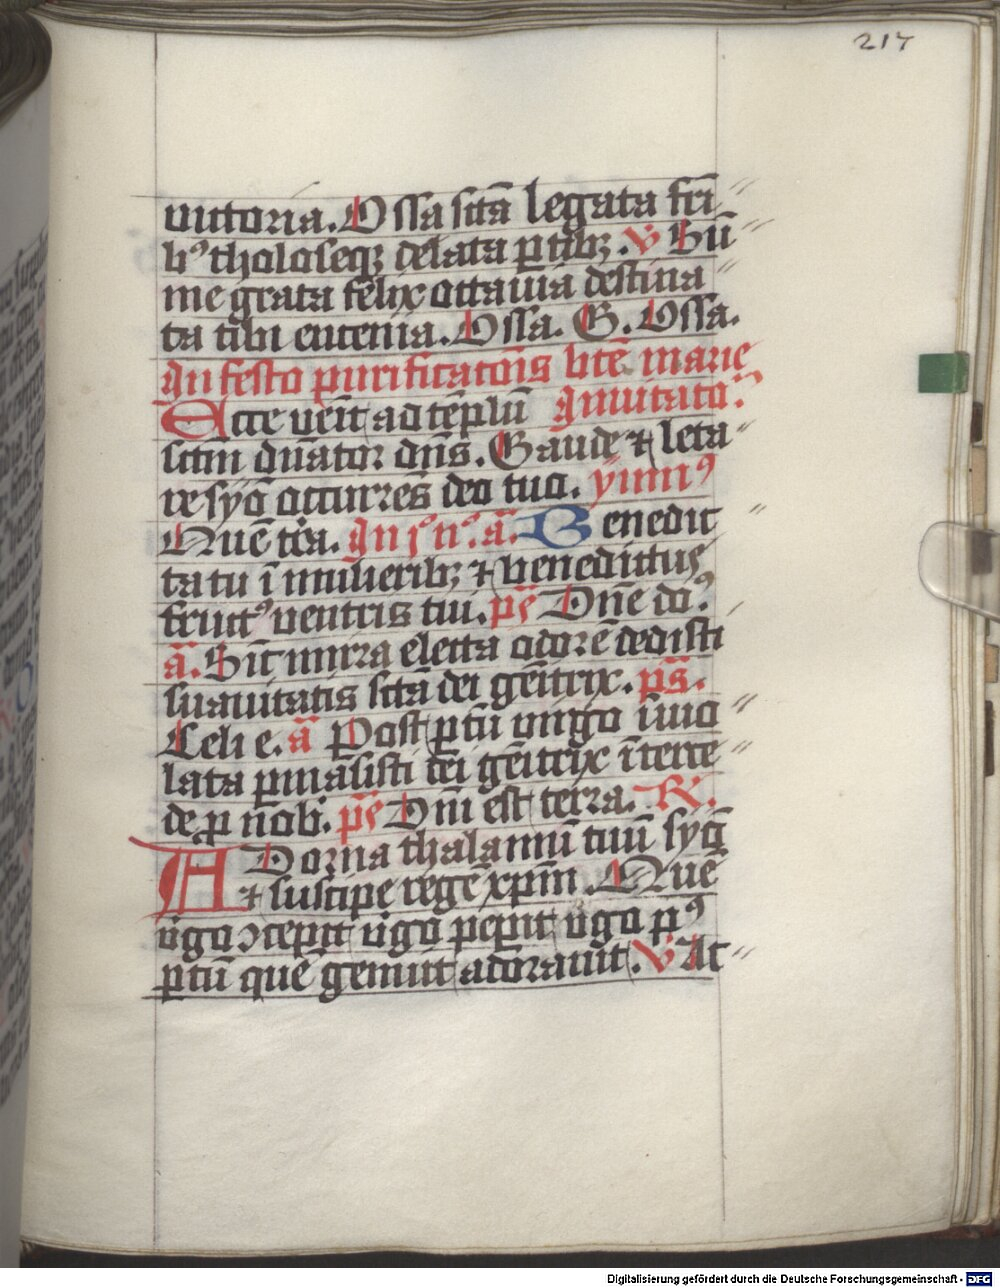 217
uictoria. Ossa sctā legata frī
bꝰ tholoseqꝫ delata ꝑtibꝫ. ℣ Sū
me grata felix octauia destina
ta tibi eugenia. Ossa. G. Ossa.
In festo purificatōis bte marie
Ecce uēit ad tēplū Inuitato.
sctm dn̄ator dn̄s. Gaude ⁊ leta
re syō occurrēs deo tuo. ymnꝰ
Quē tr̄a. In n°. ā. Benedic
ta tu ī mulieribꝫ ⁊ benedictus
fructꝰ uentris tui. pſ Dn̄e dn̄ꝰ.
ā. Sic mirra electa odorē dedisti
suauitatis sctā dei gēitrix. ps.
Celi e. ā Post ꝑtū uirgo īuio
lata ꝑmāsisti dei gēitrix īterce
de ꝓ nob. pſ Dn̄i est terra. ℟.
Adorna thalamū tuū syō
⁊ suscipe regē xp̄m. Quē
ūgo ↄcepit ūgo peperit ūgo pꝰ
ꝑtū quē genuit adorauit. ℣ Ac
Digitalisierung gefördert durch die Deutsche Forschungsgemeinschaft - DFG